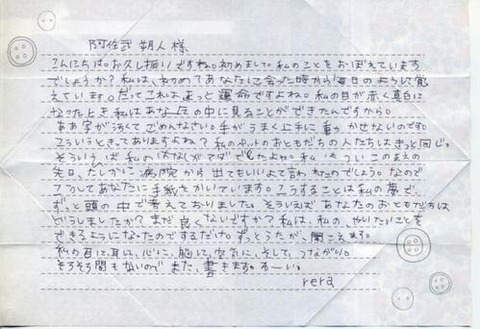 阿佐武 朔人 様
こんにちは。お久し振りですね。初めまして。私のことをおぼえています
でしょうか？私は、初めてあなたに会った時から毎日のように覚
えています。だってこれはきっと運命ですよね。私の目が赤く真白に
なったとき、私はあなたの中に見ることができたんですから。
ああ字がうすくてごめんなさい。手がうまく上手に動かせないのです。
こういうときってありますよね？私のペットのおともだちの人たちはきっと同じ。
そういえば私のはなしがマダでしたよね。私はついこのまえの
先日、たしかに病院から出てもいいよて言われたのでしょう。なので
こうしてあなたに手紙をかいています。こうすることは私の夢で、
ずっと頭の中で考えておりました。そういえばあなたのおともだちは
どうしましたか？まだ良くないですか？私は、私の、やりたいことを
できるようになったのでするだけ。ずっとうたが、聞こえます。
私の目に、耳に、心に、脳に、空気に、そして、つながり。
そろそろ間もないのでまた、書きます。すーい。
rera